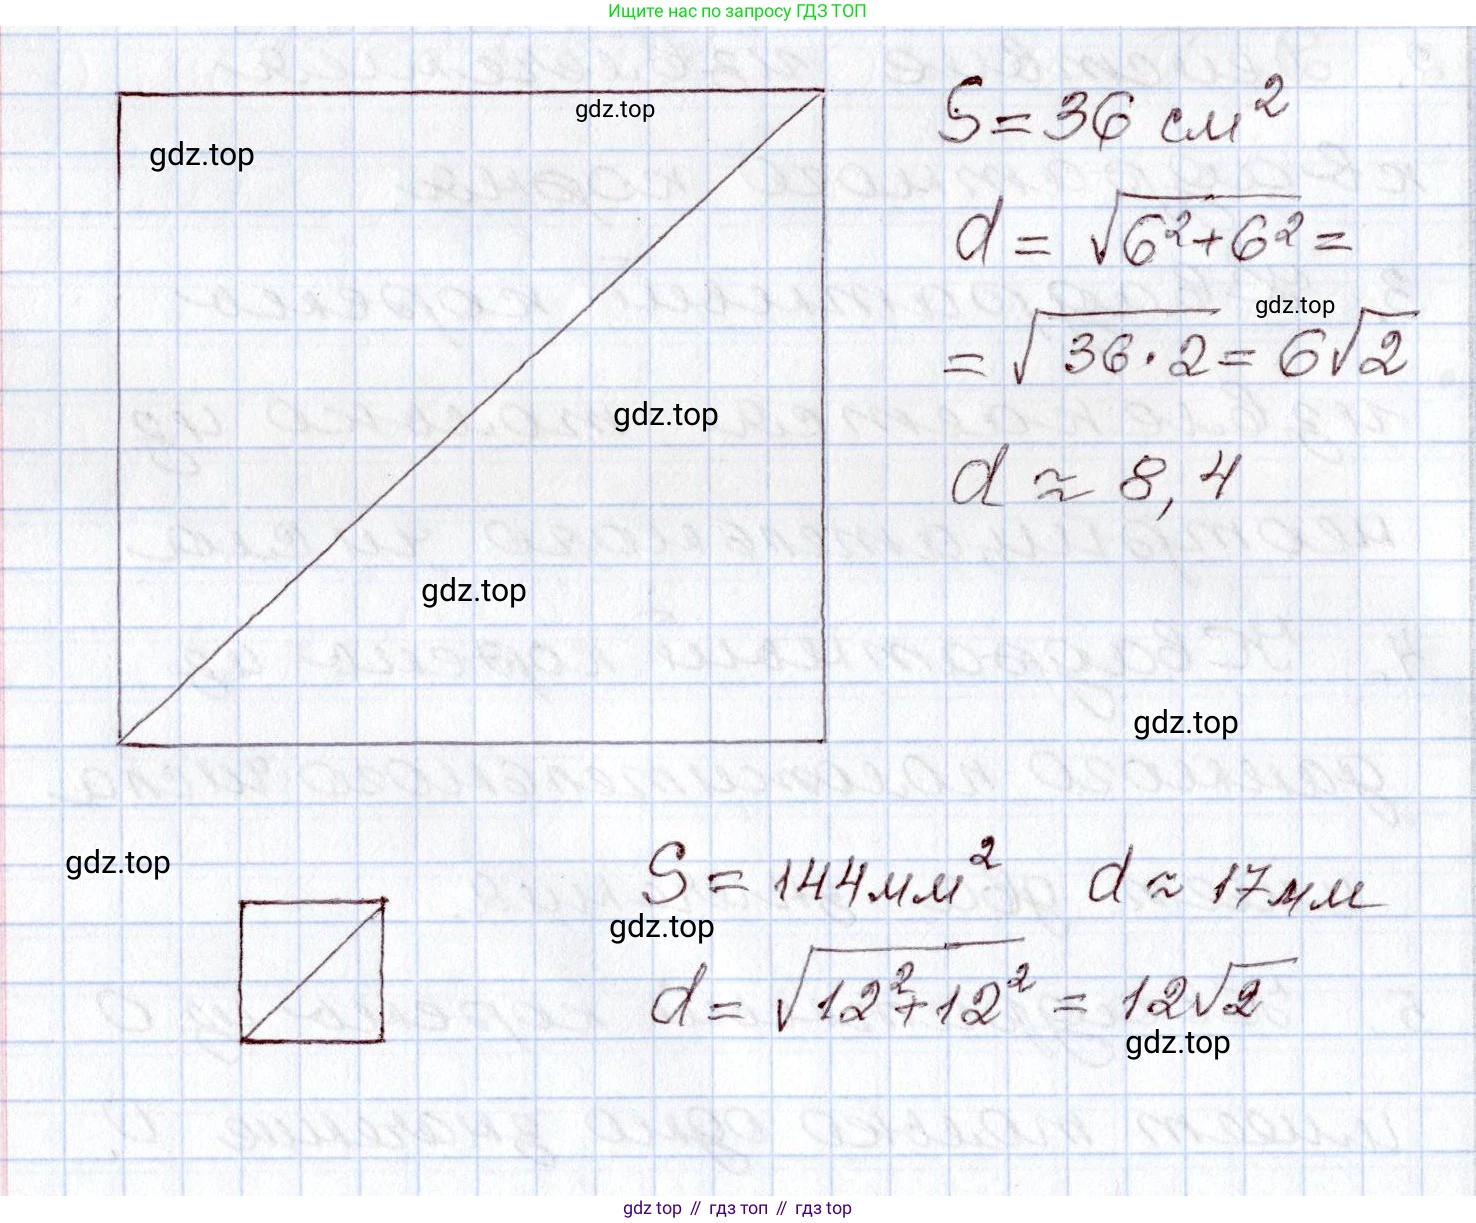 Ищите нас по запросу ГДЗ ТОП
gdz.top
gdz.top
S = 36 см²
d = √(6² + 6²) =
gdz.top
= √(36 · 2) = 6√2
gdz.top
d ≈ 8,4
gdz.top
gdz.top
gdz.top
S = 144 мм² d ≈ 17 мм
gdz.top
d = √(12² + 12²) = 12√2
gdz.top
gdz top // гдз топ // гдз top